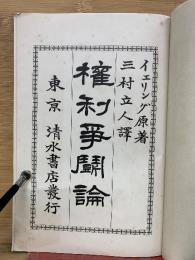 イェリング原著
三村立人譯
權利爭鬪論
東京 清水書店發行